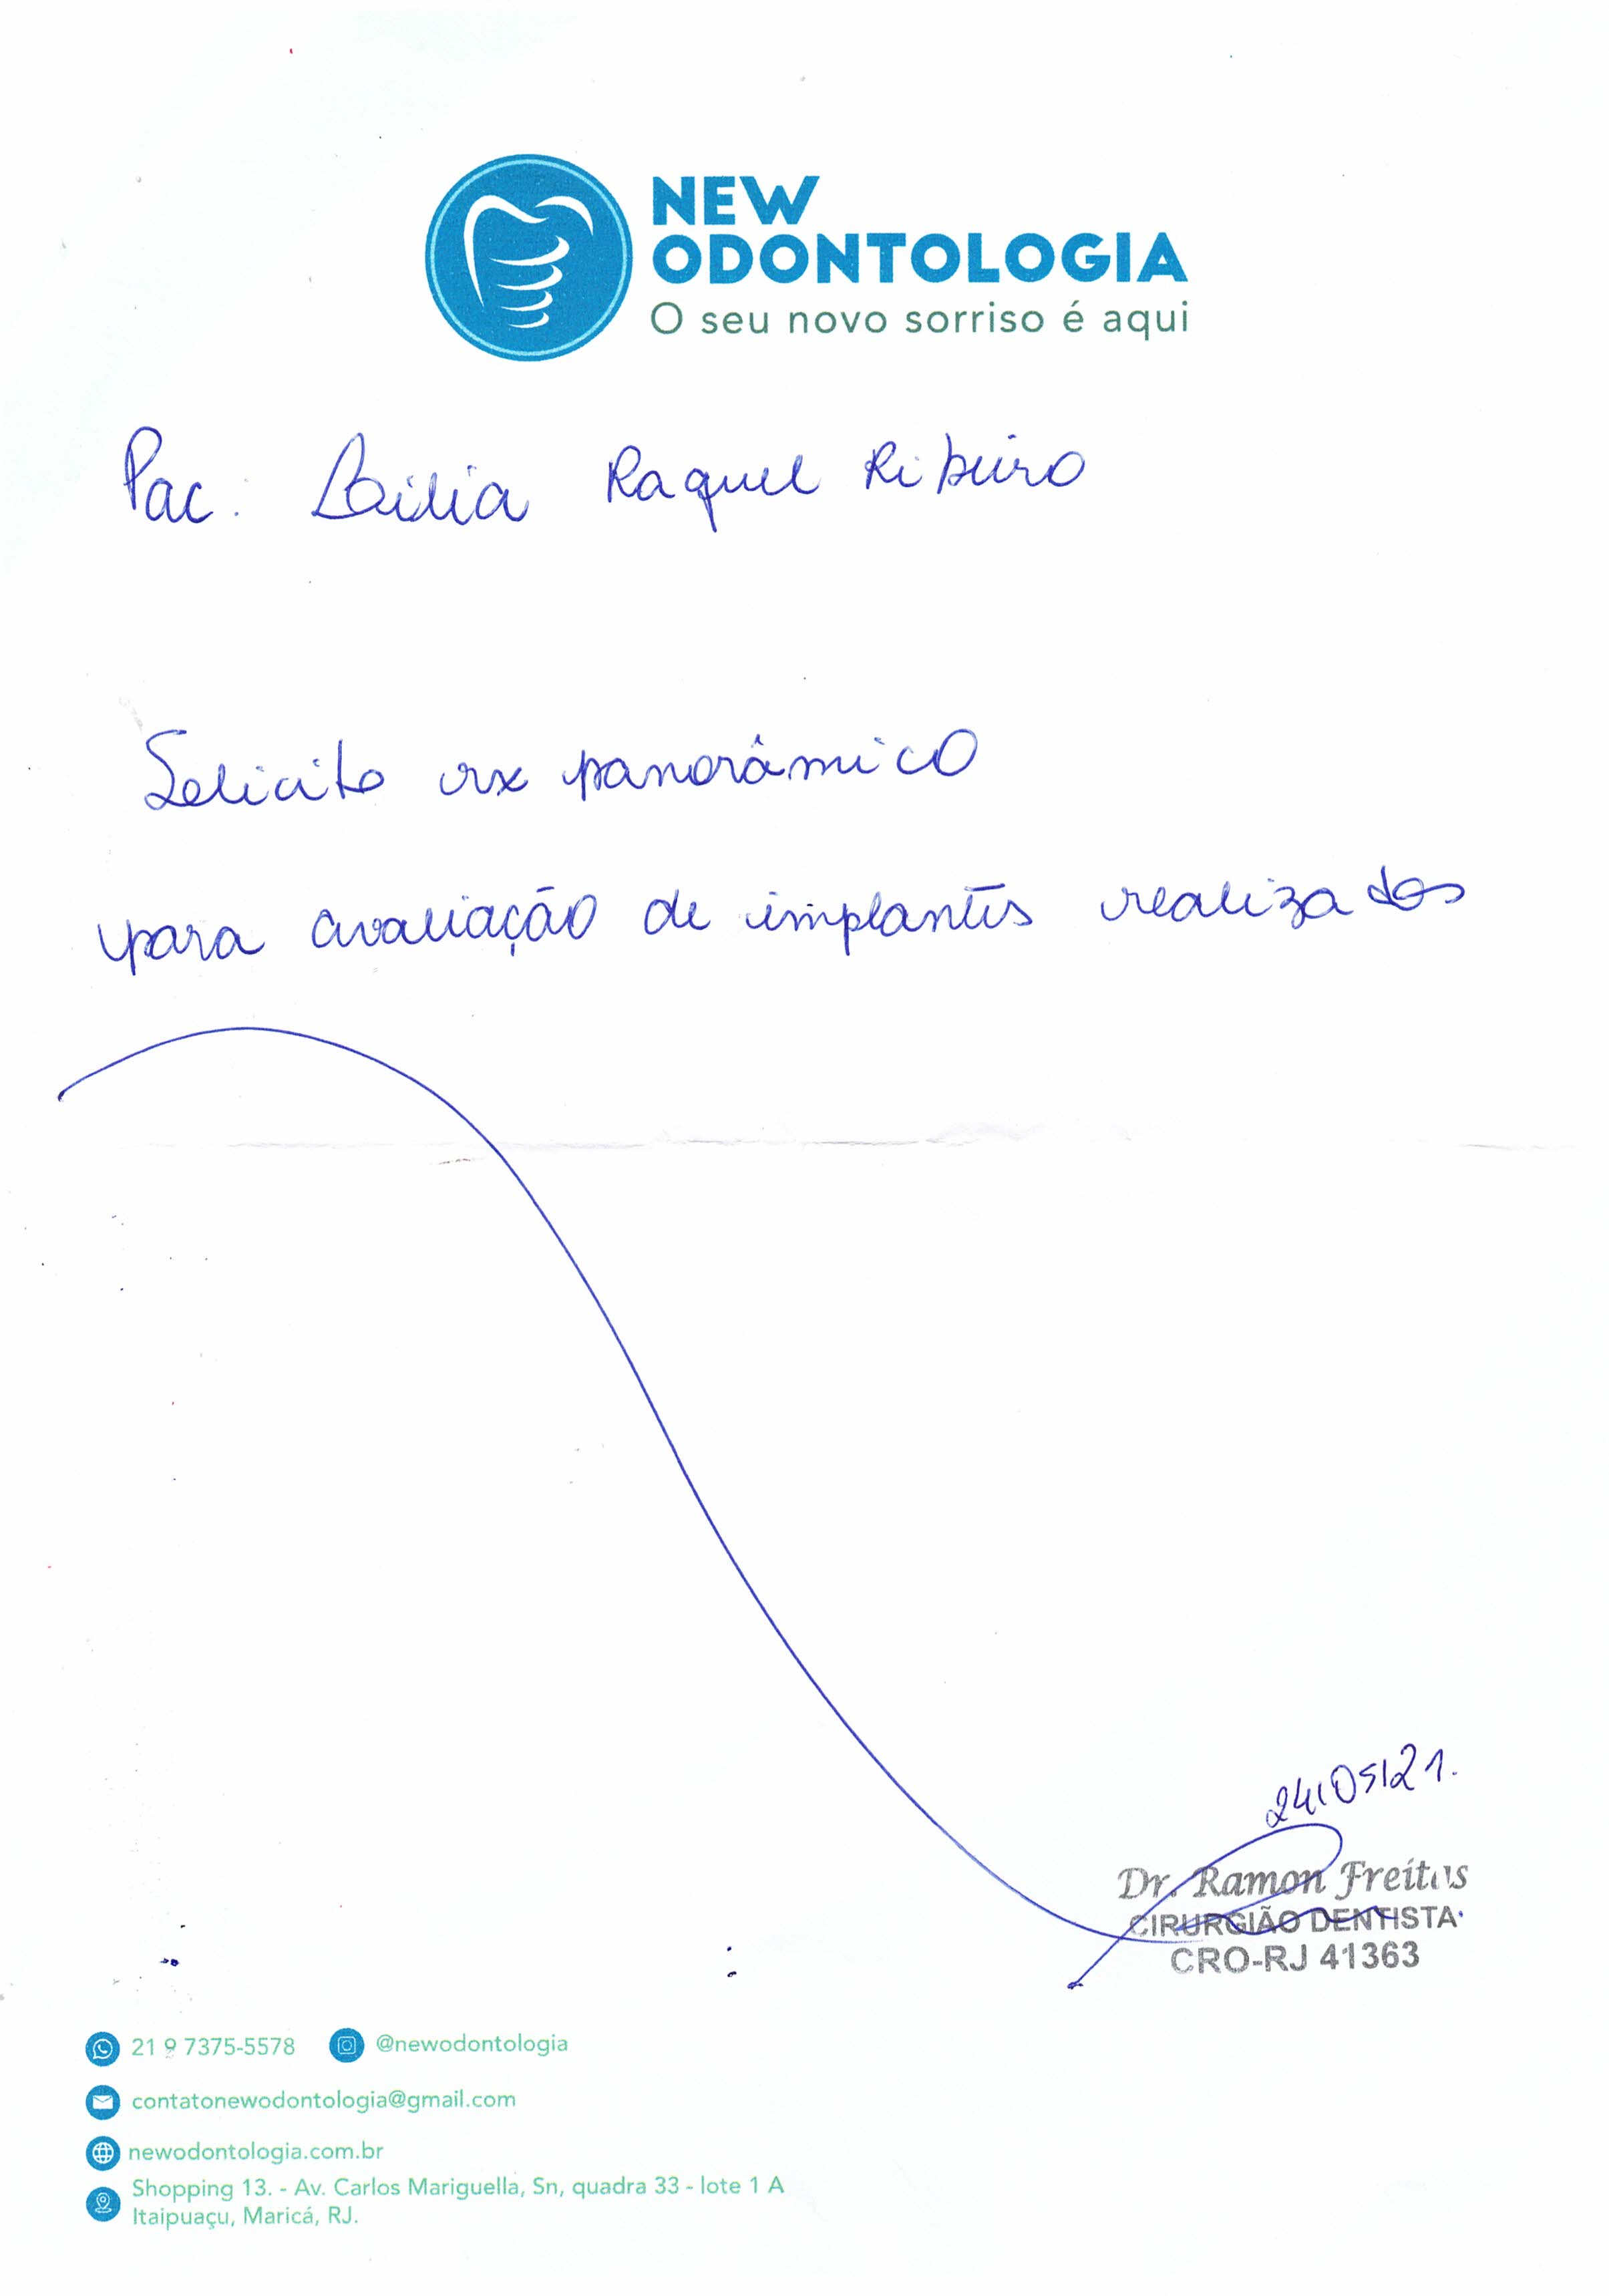 NEW
ODONTOLOGIA
O seu novo sorriso é aqui
Pac: Raquel Ribeiro
Solicito rx panorâmico
para avaliação de implantes realizados
24/05/21.
Dr. Ramon Freitas
CIRURGIÃO DENTISTA
CRO-RJ 41363
21 9 7375-5578 @newodontologia
contatonewodontologia@gmail.com
newodontologia.com.br
Shopping 13. - Av. Carlos Mariguella, Sn, quadra 33 - lote 1 A
Itaipuaçu, Maricá, RJ.